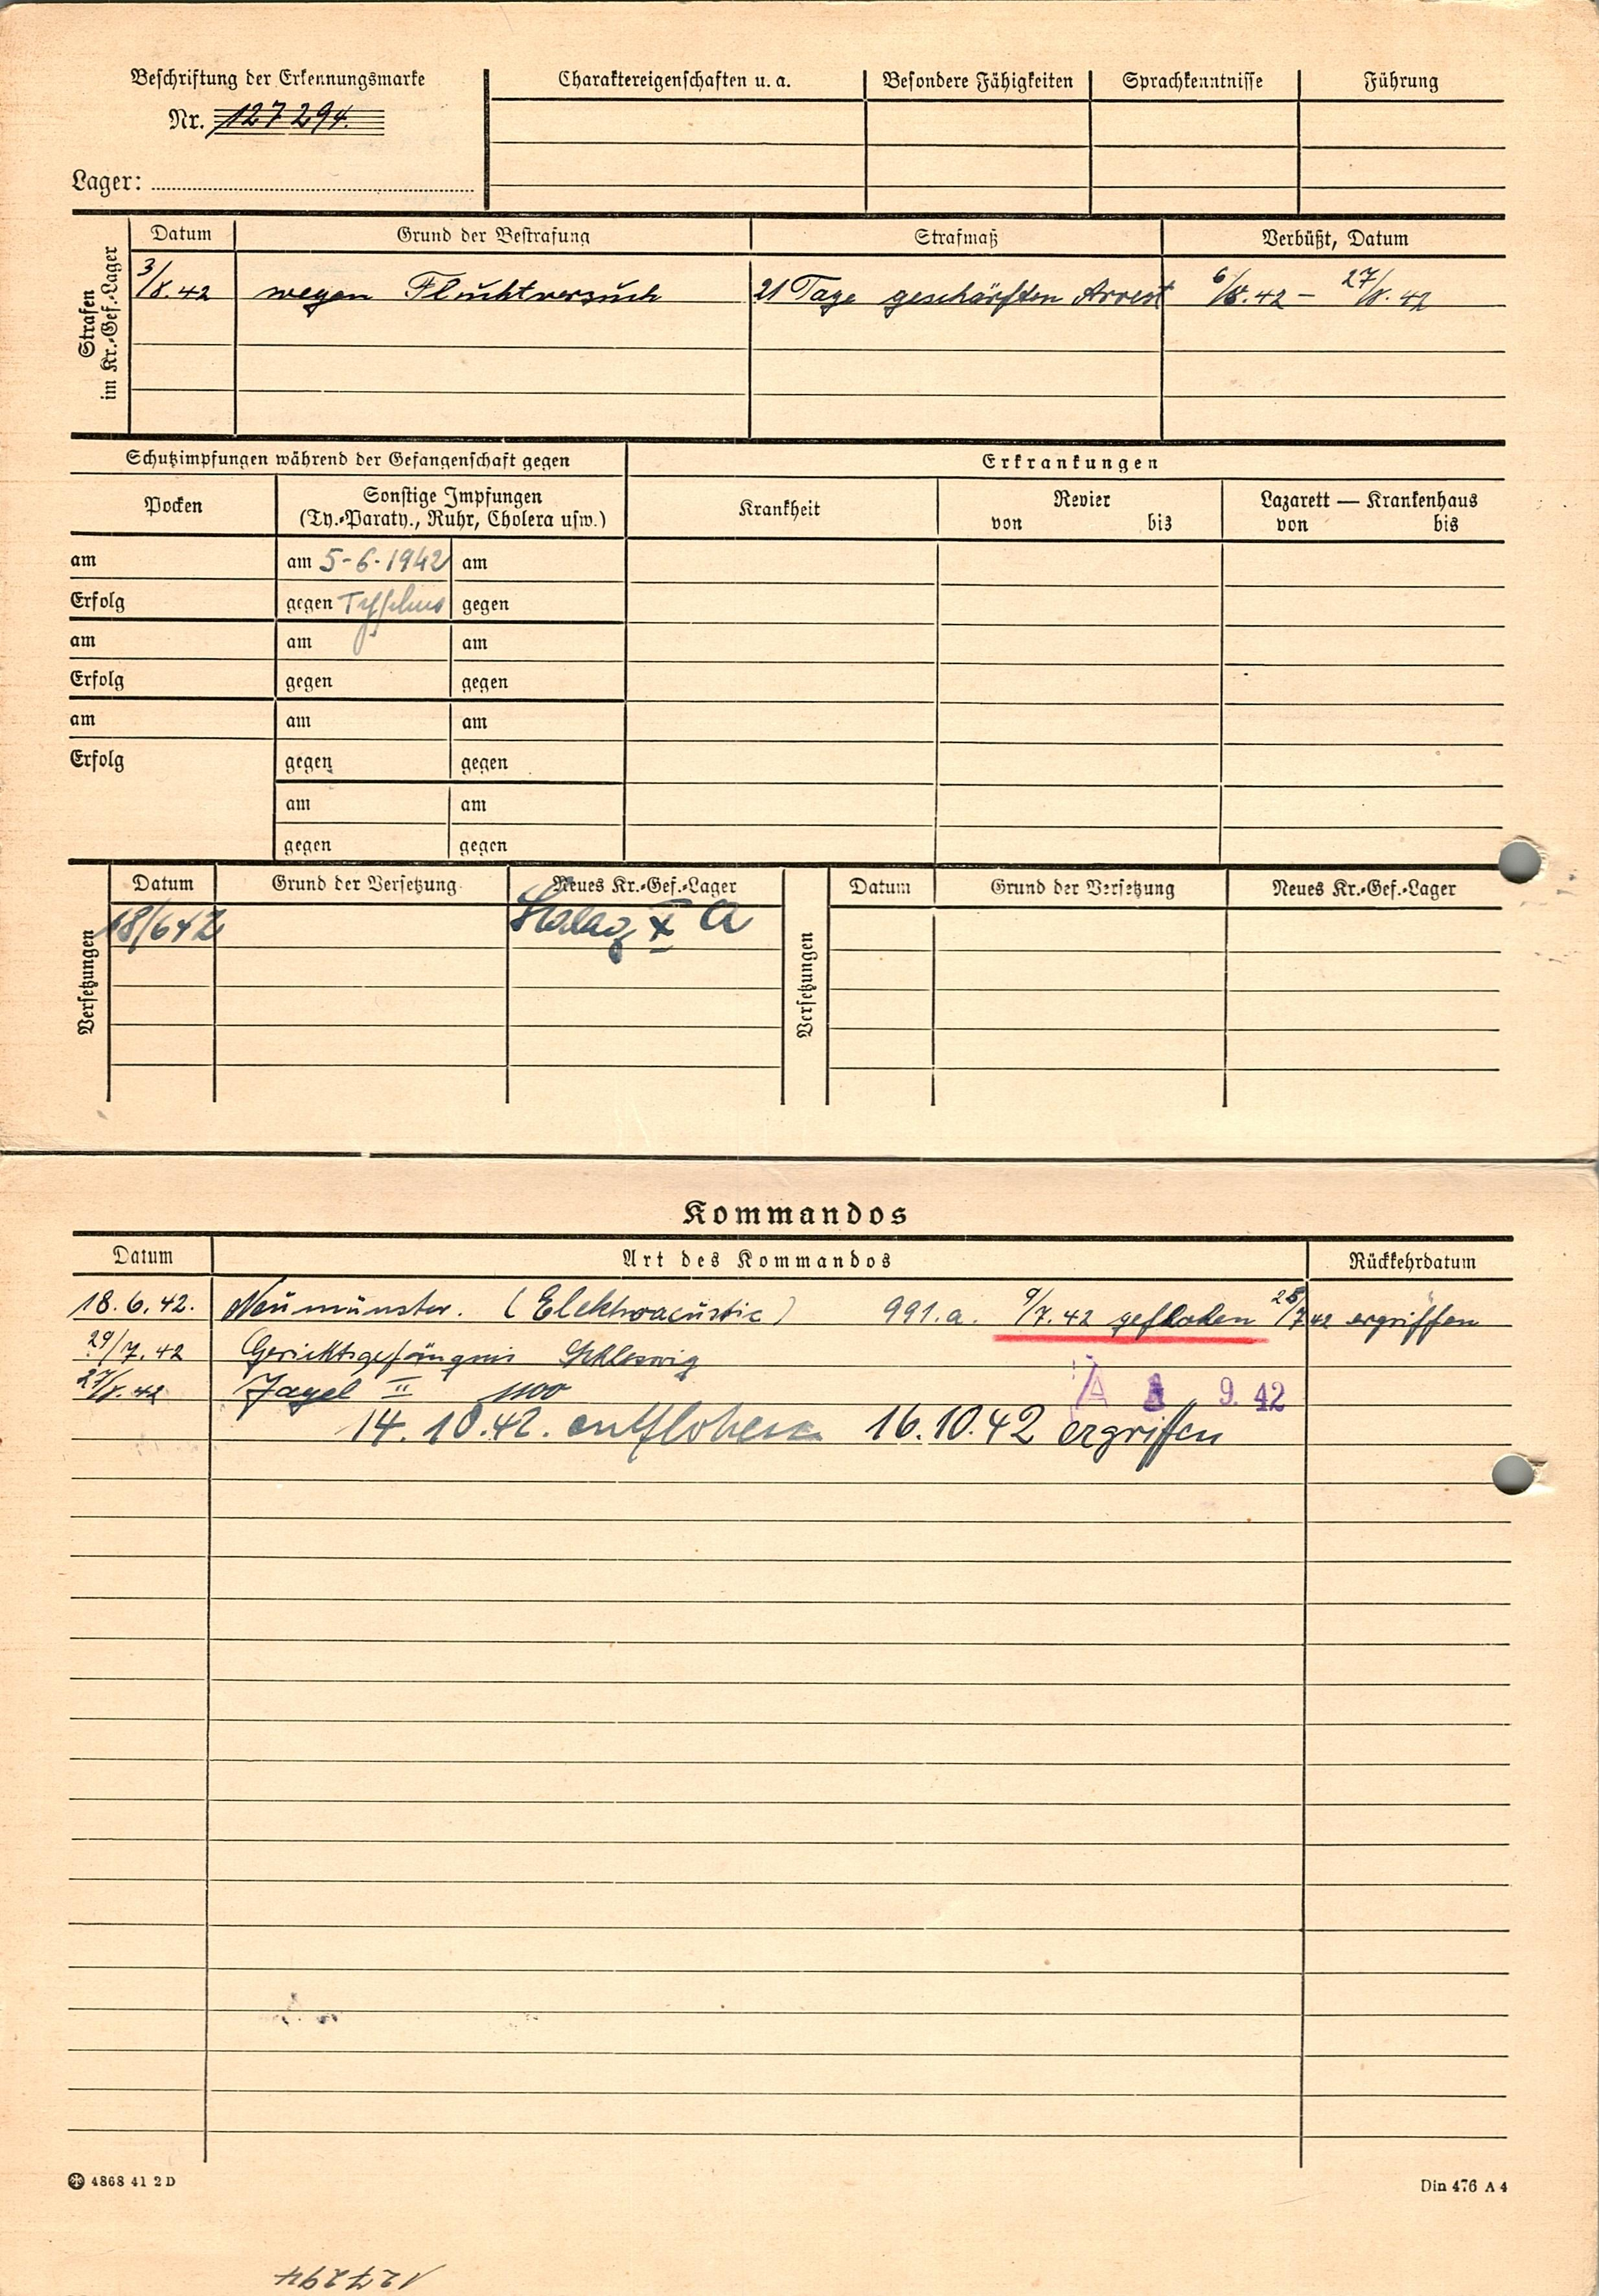 Beschriftung der Erkennungsmarke
Nr. 127294.
Lager:
Charaktereigenschaften u. a. Besondere Fähigkeiten Sprachkenntnisse Führung
Strafen im Kr.-Gef.-Lager
Datum Grund der Bestrafung Strafmaß Verbüßt, Datum
3/8.42 wegen Fluchtversuch 21 Tage geschärften Arrest 6/8.42 – 27/8.42
Schutzimpfungen während der Gefangenschaft gegen Erkrankungen
Pocken Sonstige Impfungen Krankheit Revier Lazarett — Krankenhaus
(Ty.-Paraty., Ruhr, Cholera usw.) von bis von bis
am am 5-6-1942 am
Erfolg gegen Typhus gegen
am am am
Erfolg gegen gegen
am am am
Erfolg gegen gegen
am am
gegen gegen
Versetzungen
Datum Grund der Versetzung Neues Kr.-Gef.-Lager
18/642 Stalag X A
Versetzungen
Datum Grund der Versetzung Neues Kr.-Gef.-Lager
Kommandos
Datum Art des Kommandos Rückkehrdatum
18.6.42. Neumünster. (Elektroacustic) 991.a. 9/7.42 geflohen 28/7 42 ergriffen
29/7.42 Gerichtsgefängnis Schleswig
27/8.42 Jagel II 1100 A 9. 42
14.10.42. entflohen 16.10.42 ergriffen
4868 41 2 D
Din 476 A 4
127294